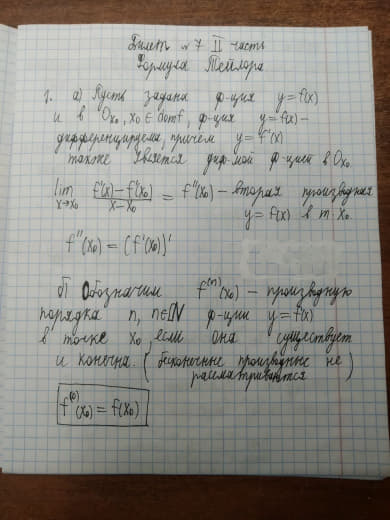 Билет №7 II часть
Формула Тейлора
1. а) Пусть задана ф-ция y=f(x)
и в Ox₀, x₀ ∈ domf, ф-ция y=f(x) –
дифференцируема, причём y=f'(x)
также является диф-мой ф-цией в Ox₀
lim x→x₀ (f'(x)-f'(x₀))/(x-x₀) = f''(x₀) – вторая производная
y=f(x) в т. x₀.
f''(x₀) = (f'(x₀))'
б) Обозначим f⁽ⁿ⁾(x₀) – производную
порядка n, n∈ℕ ф-ции y=f(x)
в точке x₀, если она существует
и конечна. (бесконечные производные не
рассматриваются)
f⁽⁰⁾(x₀) = f(x₀)